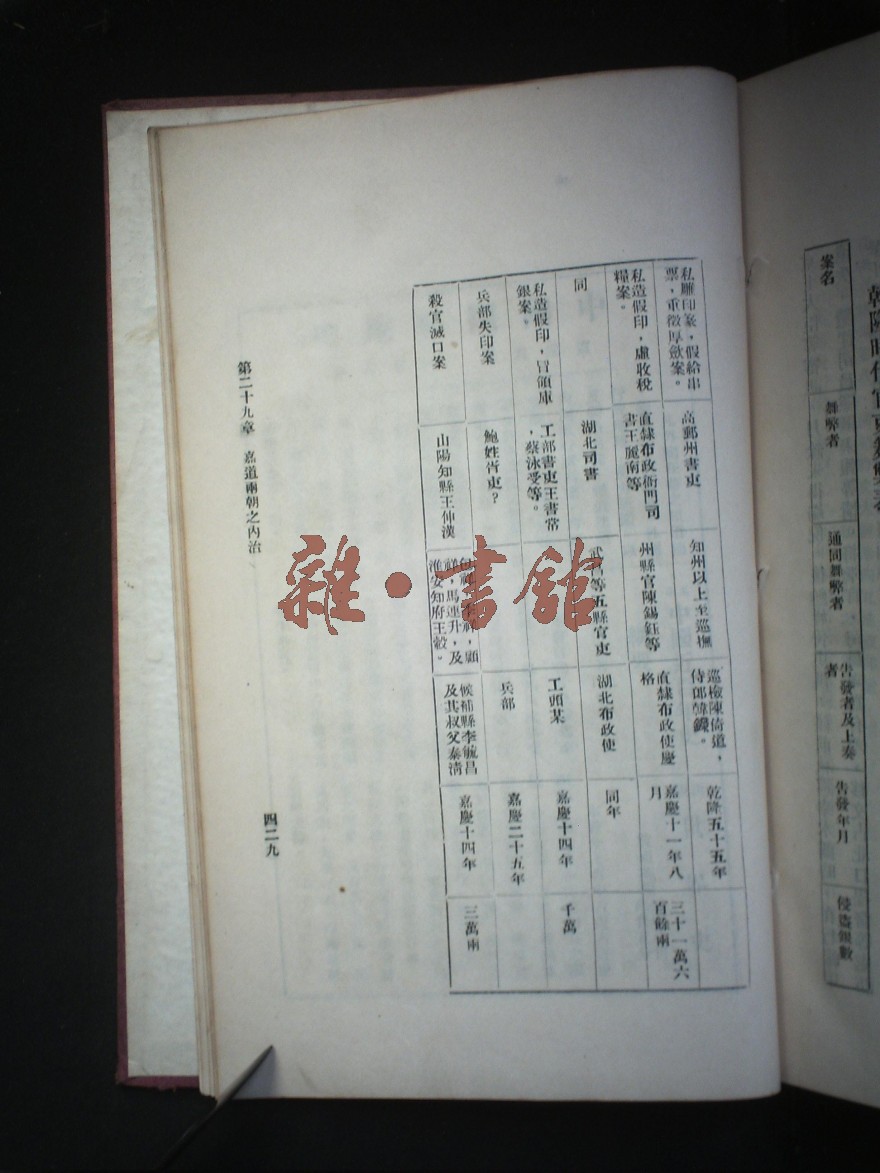 案名
舞弊者
通同舞弊者
告發者及上奏
者
告發年月
侵盜銀數
私雕印篆，假給串
票，重徵厚斂案。
高郵州書吏
知州以上至巡撫
巡檢陳倚道，
侍郎韓鑅。
乾隆五十五年
私造假印，虛收稅
糧案。
直隸布政衙門司
書王麗南等
州縣官陳錫鈺等
直隸布政使慶
格
嘉慶十一年八
月
三十一萬六
百餘兩
同
湖北司書
等五縣官吏
湖北布政使
同年
私造假印，冒領庫
銀案。
工部書吏王書常
，蔡泳受等。
工頭某
嘉慶十四年
千萬
兵部失印案
鮑姓胥吏？
兵部
嘉慶二十五年
殺官滅口案
山陽知縣王伸漢
，顧
祥，馬連升，及
淮安知府王轂。
候補縣李毓昌
及其叔父泰清
嘉慶十四年
三萬兩
第二十九章　嘉道兩朝之內治
四二九
雜·書館